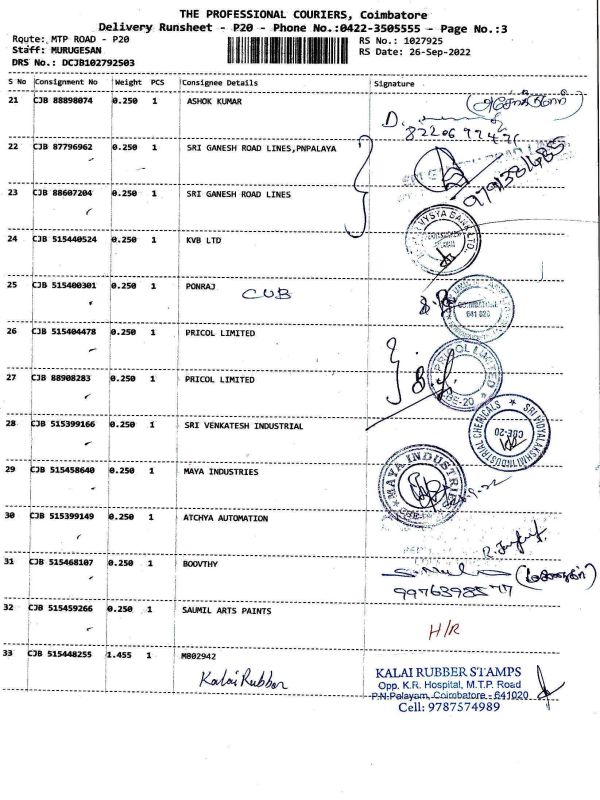 THE PROFESSIONAL COURIERS, Coimbatore
Delivery Runsheet - P20 - Phone No.:0422-3505555 - Page No.:3
Route: MTP ROAD - P20
RS No.: 1027925
Staff: MURUGESAN
RS Date: 26-Sep-2022
DRS No.: DCJB102792503
S No Consignment No Weight PCS Consignee Details Signature
21 CJB 88898074 0.250 1 ASHOK KUMAR
22 CJB 87796962 0.250 1 SRI GANESH ROAD LINES,PNPALAYA
9791381485
23 CJB 88607204 0.250 1 SRI GANESH ROAD LINES
24 CJB 515440524 0.250 1 KVB LTD
VYSYA BANK LTD.
25 CJB 515400301 0.250 1 PONRAJ
CUB
COIMBATORE
641 020
26 CJB 515404478 0.250 1 PRICOL LIMITED
PRICOL LIMITED
CBE-20
27 CJB 88908283 0.250 1 PRICOL LIMITED
28 CJB 515399166 0.250 1 SRI VENKATESH INDUSTRIAL
SRI VIDYALAKSHMI INDUSTRIAL CHEMICALS
CBE-20
29 CJB 515458640 0.250 1 MAYA INDUSTRIES
MAYA INDUSTRIES
30 CJB 515399149 0.250 1 ATCHYA AUTOMATION
31 CJB 515468107 0.250 1 BOOVTHY
32 CJB 515459266 0.250 1 SAUMIL ARTS PAINTS
H/R
33 CJB 515448255 1.455 1 M802942
Kalai Rubber
KALAI RUBBER STAMPS
Opp. K.R. Hospital, M.T.P. Road
P.N.Palayam, Coimbatore - 641020
Cell: 9787574989